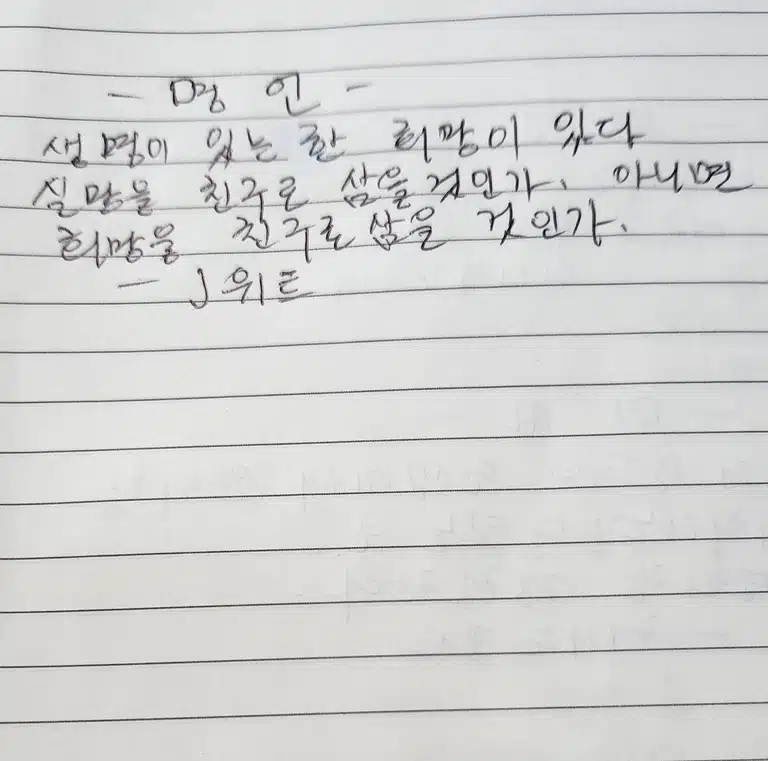 - 명 언 -
생명이 있는 한 희망이 있다
실망을 친구로 삼을것인가. 아니면
희망을 친구로 삼을 것인가.
- J 위트